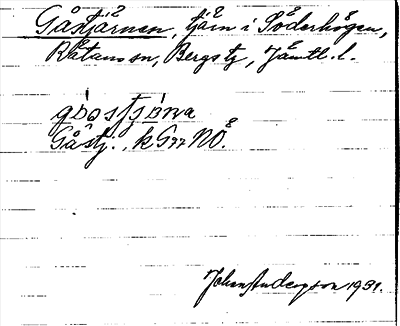 Gåstjärnen, tjärn i Söderhögen,
Råtans sn, Bergs tg, Jämtl. l.
Gåstj., k G NÖ.
Johan Anderson 1931.